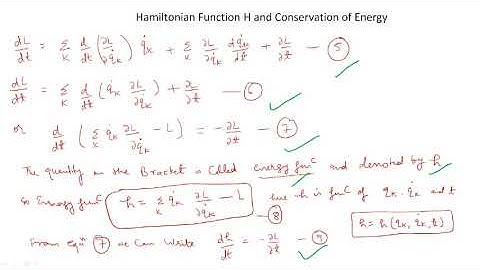 Hamiltonian Function H and Conservation of Energy
dL/dt = Σ_K d/dt (∂L/∂q̇_K) q̇_K + Σ_K ∂L/∂q̇_K dq̇_K/dt + ∂L/∂t — (5)
dL/dt = Σ_K d/dt (q̇_K ∂L/∂q̇_K) + ∂L/∂t — (6)
or d/dt (Σ_K q̇_K ∂L/∂q̇_K - L) = -∂L/∂t — (7)
The quantity in the Bracket is Called energy func and denoted by h
So Energy func h = Σ_K q̇_K ∂L/∂q̇_K - L — (8) here h is func of q_K, q̇_K and t
h = h(q_K, q̇_K, t)
From eqn (7) we Can Write dh/dt = -∂L/∂t — (9)